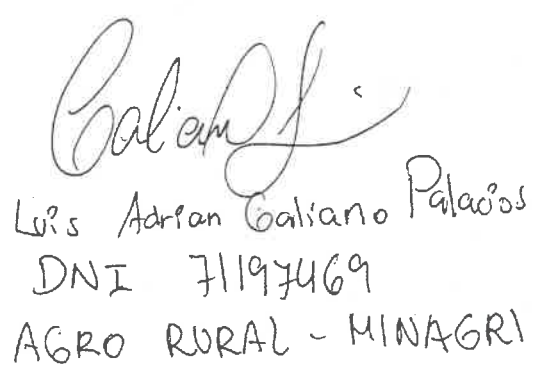 Galiano
Luis Adrian Galiano Palacios
DNI 71197469
AGRO RURAL - MINAGRI